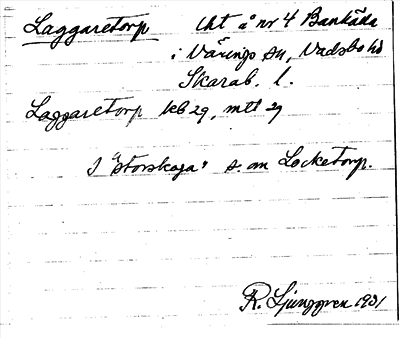 Laggaretorp Uht å nr 4 Bankäla
i Värings sn, Vadsbo hd
Skarab. l.
Laggaretorp kb 29, mtl 29
I "storskoga" s. om Locketorp.
R. Ljunggren 1931